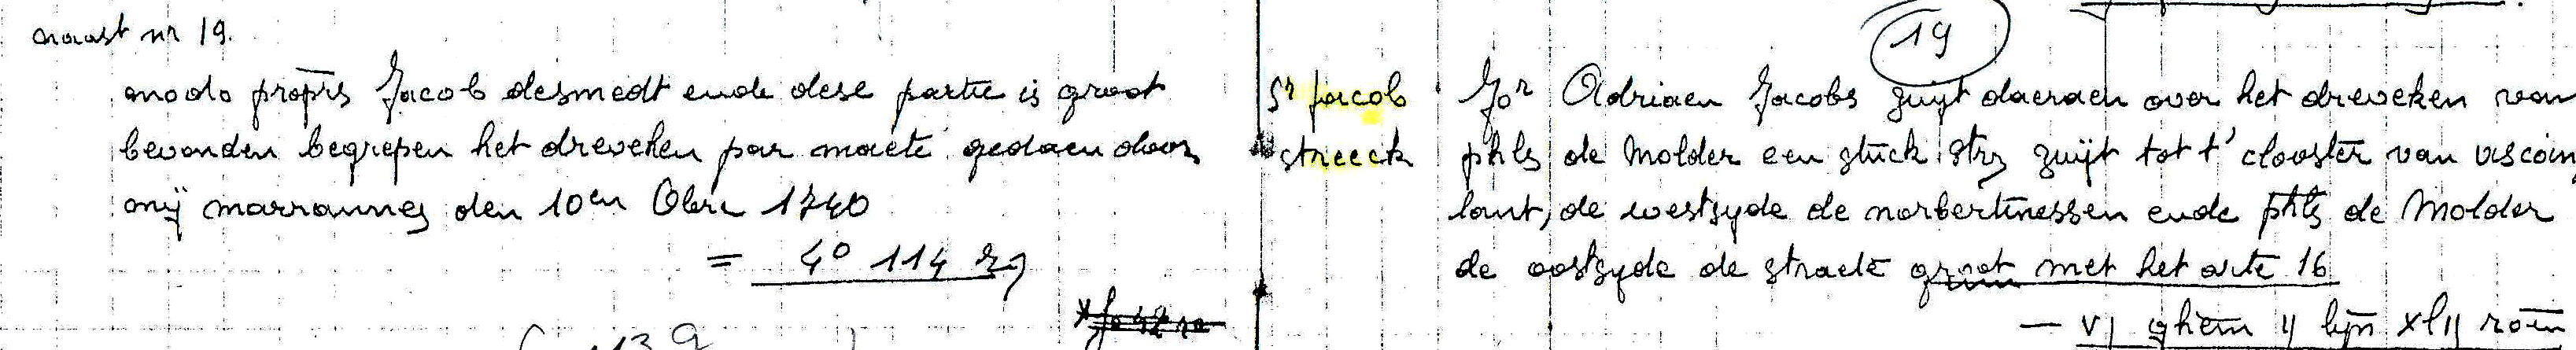 naast nr 19.
modo proprs Jacob desmedt ende dese partie is groot
bevonden begrepen het dreveken par maete gedaen door
mij marrannes den 10en 8bre 1740
= 40 114 rg
19
Sr jacob
streeck
Jor Adriaen Jacobs zuyt daeraen over het dreveken van
phls de Molder een stuck strz zuijt tot t' clooster van
lant, de westzyde de norbertinessen ende phls de Molder
de oostzyde de straete groot met het arte 16
— vj ghem ij lijn xlij roen